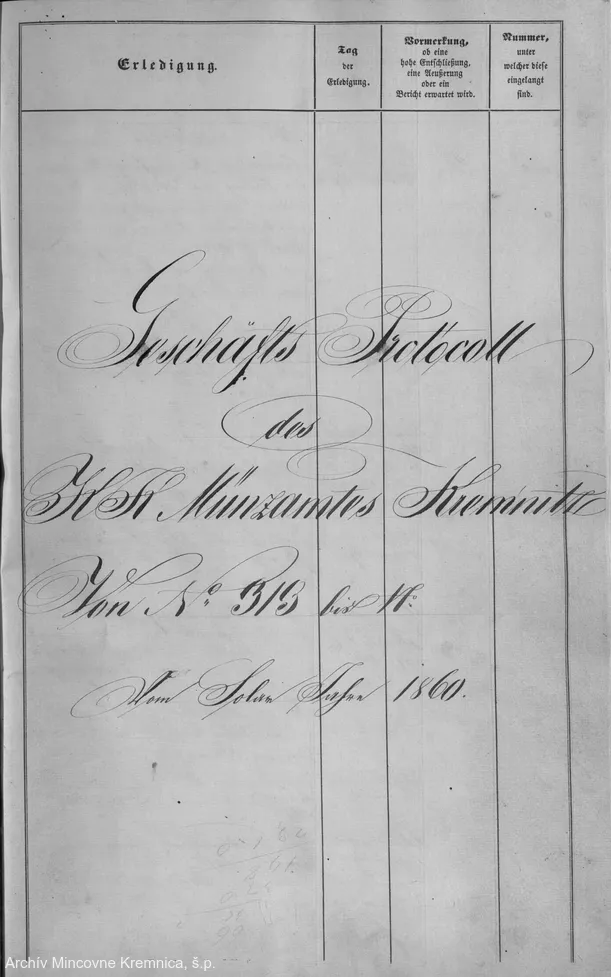 Erledigung.
Tag
der
Erledigung.
Vormerkung,
ob eine
hohe Entschließung,
eine Aeußerung
oder ein
Bericht erwartet wird.
Nummer,
unter
welcher diese
eingelangt
sind.
Geschäfts Protocoll
des
K K Münzamtes Kremnitz
Von No. 313 bis No.
Vom Solar Jahre 1860.
Archív Mincovne Kremnica, š.p.